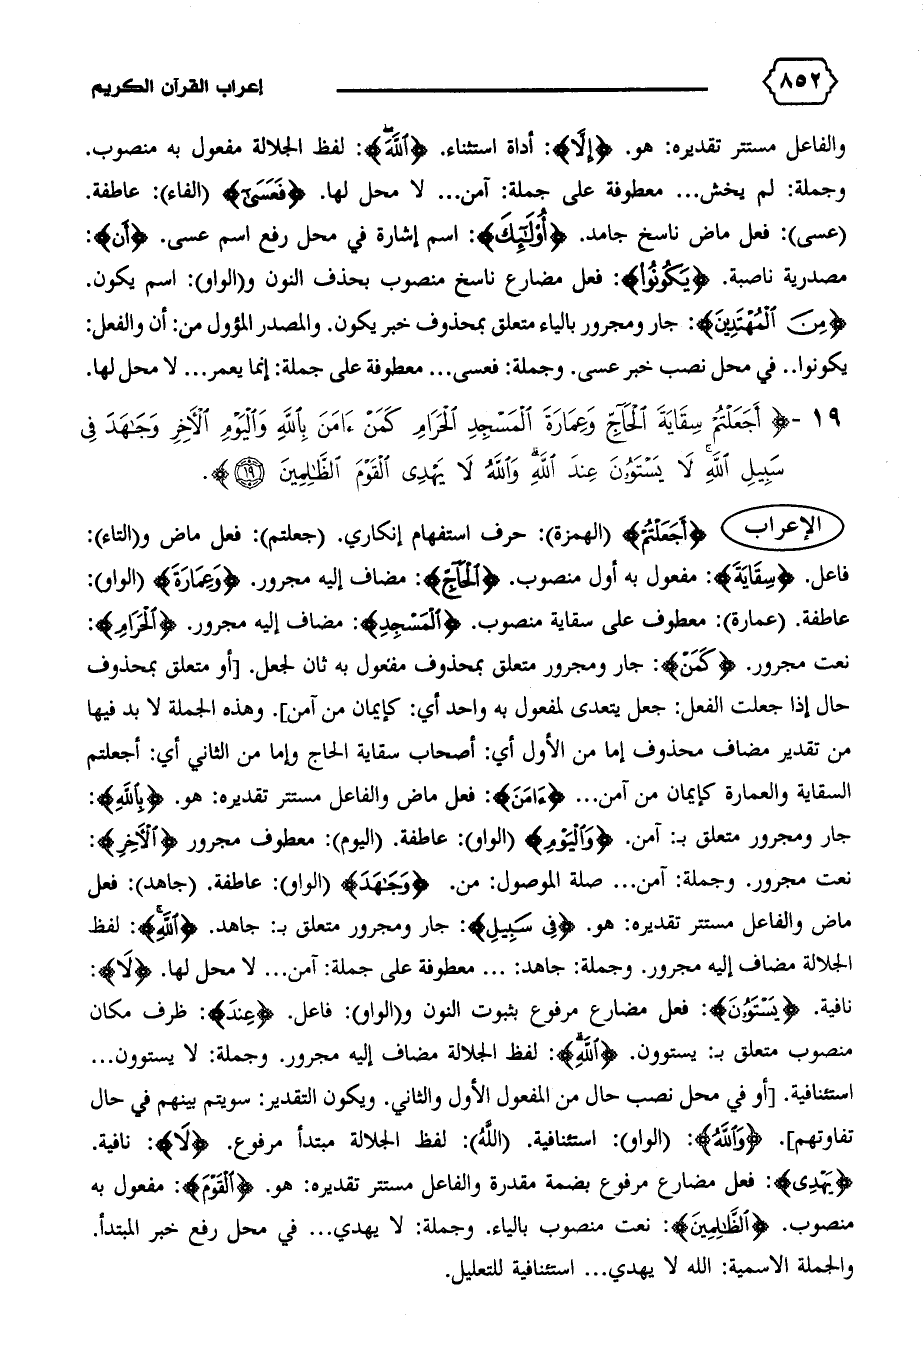 ٨٥٢ إعراب القرآن الكريم
والفاعل مستتر تقديره: هو. ﴿إِلَّا﴾: أداة استثناء. ﴿ٱللَّهَ ۖ﴾: لفظ الجلالة مفعول به منصوب.
وجملة: لم يخش... معطوفة على جملة: آمن... لا محل لها. ﴿فَعَسَىٰٓ﴾ (الفاء): عاطفة.
(عسى): فعل ماض ناسخ جامد. ﴿أُوْلَٰٓئِكَ﴾: اسم إشارة في محل رفع اسم عسى. ﴿أَن﴾:
مصدرية ناصبة. ﴿يَكُونُوا۟﴾: فعل مضارع ناسخ منصوب بحذف النون و(الواو): اسم يكون.
﴿مِنَ ٱلْمُهْتَدِينَ﴾: جار ومجرور بالياء متعلق بمحذوف خبر يكون. والمصدر المؤول من: أن والفعل:
يكونوا.. في محل نصب خبر عسى. وجملة: فعسى... معطوفة على جملة: إنما يعمر... لا محل لها.
١٩ -﴿ أَجَعَلْتُمْ سِقَايَةَ ٱلْحَآجِّ وَعِمَارَةَ ٱلْمَسْجِدِ ٱلْحَرَامِ كَمَنْ ءَامَنَ بِٱللَّهِ وَٱلْيَوْمِ ٱلْأٓخِرِ وَجَٰهَدَ فِى
سَبِيلِ ٱللَّهِ ۚ لَا يَسْتَوُۥنَ عِندَ ٱللَّهِ ۗ وَٱللَّهُ لَا يَهْدِى ٱلْقَوْمَ ٱلظَّٰلِمِينَ ﴿١٩﴾﴾.
الإعراب ﴿أَجَعَلْتُمْ﴾ (الهمزة): حرف استفهام إنكاري. (جعلتم): فعل ماض و(التاء):
فاعل. ﴿سِقَايَةَ﴾: مفعول به أول منصوب. ﴿ٱلْحَآجِّ﴾: مضاف إليه مجرور. ﴿وَعِمَارَةَ﴾ (الواو):
عاطفة. (عمارة): معطوف على سقاية منصوب. ﴿ٱلْمَسْجِدِ﴾: مضاف إليه مجرور. ﴿ٱلْحَرَامِ﴾:
نعت مجرور. ﴿كَمَنْ﴾: جار ومجرور متعلق بمحذوف مفعول به ثان لجعل. [أو متعلق بمحذوف
حال إذا جعلت الفعل: جعل يتعدى لمفعول به واحد أي: كإيمان من آمن]. وهذه الجملة لا بد فيها
من تقدير مضاف محذوف إما من الأول أي: أصحاب سقاية الحاج وإما من الثاني أي: أجعلتم
السقاية والعمارة كإيمان من آمن... ﴿ءَامَنَ﴾: فعل ماض والفاعل مستتر تقديره: هو. ﴿بِٱللَّهِ﴾:
جار ومجرور متعلق بـ: آمن. ﴿وَٱلْيَوْمِ﴾ (الواو): عاطفة. (اليوم): معطوف مجرور ﴿ٱلْأٓخِرِ﴾:
نعت مجرور. وجملة: آمن... صلة الموصول: من. ﴿وَجَٰهَدَ﴾ (الواو): عاطفة. (جاهد): فعل
ماض والفاعل مستتر تقديره: هو. ﴿فِى سَبِيلِ﴾: جار ومجرور متعلق بـ: جاهد. ﴿ٱللَّهِ ۚ﴾: لفظ
الجلالة مضاف إليه مجرور. وجملة: جاهد: ... معطوفة على جملة: آمن... لا محل لها. ﴿لَا﴾:
نافية. ﴿يَسْتَوُۥنَ﴾: فعل مضارع مرفوع بثبوت النون و(الواو): فاعل. ﴿عِندَ﴾: ظرف مكان
منصوب متعلق بـ: يستوون. ﴿ٱللَّهِ ۗ﴾: لفظ الجلالة مضاف إليه مجرور. وجملة: لا يستوون...
استئنافية. [أو في محل نصب حال من المفعول الأول والثاني. ويكون التقدير: سويتم بينهم في حال
تفاوتهم]. ﴿وَٱللَّهُ﴾: (الواو): استئنافية. (اللَّهُ): لفظ الجلالة مبتدأ مرفوع. ﴿لَا﴾: نافية.
﴿يَهْدِى﴾: فعل مضارع مرفوع بضمة مقدرة والفاعل مستتر تقديره: هو. ﴿ٱلْقَوْمَ﴾: مفعول به
منصوب. ﴿ٱلظَّٰلِمِينَ﴾: نعت منصوب بالياء. وجملة: لا يهدي... في محل رفع خبر المبتدأ.
والجملة الاسمية: الله لا يهدي... استئنافية للتعليل.